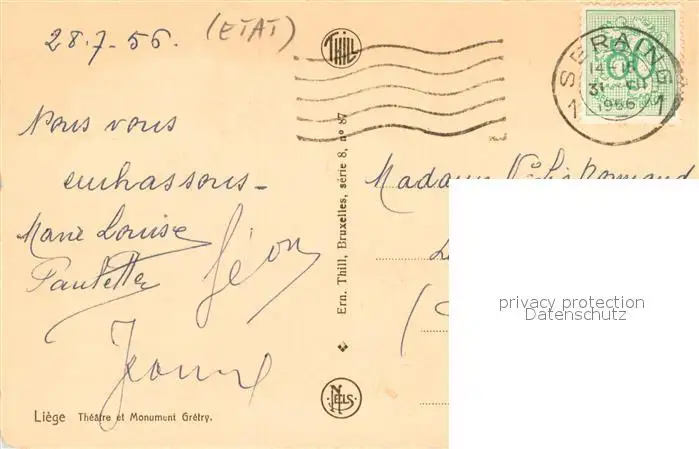 28.7-56.
(ETAT)
THILL
SERAING
14-15
31 VII
1956
1 1
80
Nous vous
embrassons -
Marie Louise
Paulette
Léon
Jeanne
Ern. Thill, Bruxelles, série 8, nº 87
NELS
Liège Théâtre et Monument Grétry.
Madame
privacy protection
Datenschutz